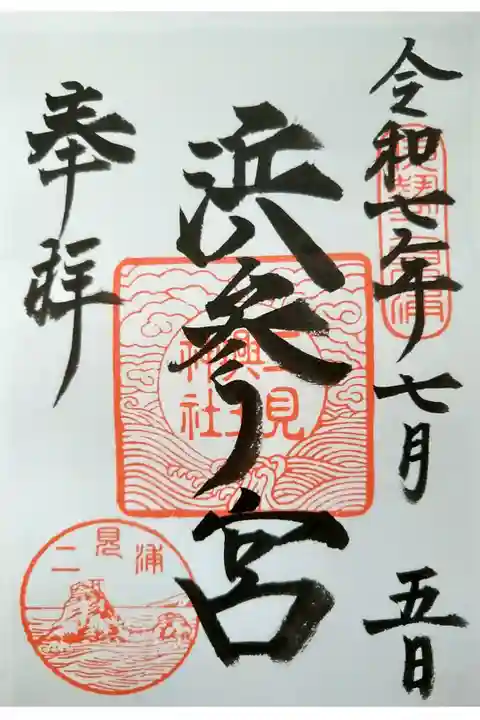 令和七年七月五日
伊勢二見浦
浜参り宮
二見興玉神社
奉拝
二見浦